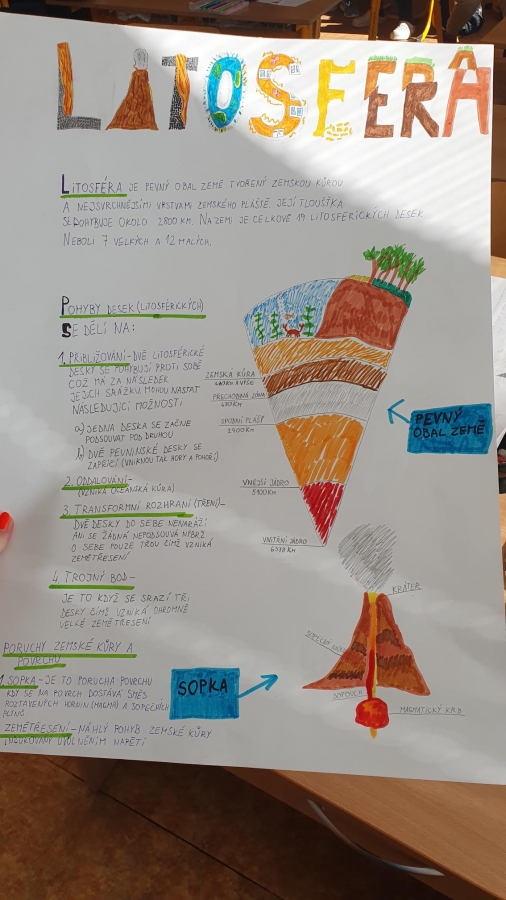 LITOSFÉRA
LITOSFÉRA JE PEVNÝ OBAL ZEMĚ TVOŘENÝ ZEMSKOU KŮROU
A NEJSVRCHNĚJŠÍMI VRSTVAMI ZEMSKÉHO PLÁŠTĚ. JEJÍ TLOUŠŤKA
SE POHYBUJE OKOLO 2800 KM. NA ZEMI JE CELKOVĚ 19 LITOSFERICKÝCH DESEK
NEBOLI 7 VELKÝCH A 12 MALÝCH.
POHYBY DESEK (LITOSFÉRICKÝCH)
SE DĚLÍ NA:
1. PŘIBLIŽOVÁNÍ - DVĚ LITOSFÉRICKÉ
DESKY SE POHYBUJÍ PROTI SOBĚ
COŽ MÁ ZA NÁSLEDEK
JEJICH SRÁŽKU. MOHOU NASTAT
NÁSLEDUJÍCÍ MOŽNOSTI:
a) JEDNA DESKA SE ZAČNE
PODSOUVAT POD DRUHOU
b) DVĚ PEVNINSKÉ DESKY SE
ZAPŘÍČÍ (VNIKNOU TAK HORY A POHOŘÍ)
2. ODDALOVÁNÍ -
(VZNIKÁ OCEÁNSKÁ KŮRA)
3. TRANSFORMNÍ ROZHRANÍ (TŘENÍ) -
DVĚ DESKY DO SEBE NENARÁŽÍ
ANI SE ŽÁDNÁ NEPODSOUVÁ NÝBRŽ
O SEBE POUZE TŘOU ČÍMŽ VZNIKÁ
ZEMĚTŘESENÍ
4. TROJNÝ BOD -
JE TO KDYŽ SE SRAZÍ TŘI
DESKY ČÍMŽ VZNIKÁ OHROMNĚ
VELKÉ ZEMĚTŘESENÍ
PORUCHY ZEMSKÉ KŮRY A
POVRCHU
1. SOPKA - JE TO PORUCHA POVRCHU
KDY SE NA POVRCH DOSTÁVÁ SMĚS
ROZTAVENÝCH HORNIN (MAGMA) A SOPEČNÝCH
PLYNŮ
ZEMĚTŘESENÍ - NÁHLÝ POHYB ZEMSKÉ KŮRY
UVOLNĚNÍM NAPĚTÍ
ZEMSKÁ KŮRA
PŘECHODNÁ ZÓNA
SPODNÍ PLÁŠŤ
2900 KM
VNĚJŠÍ JÁDRO
5100 KM
VNITŘNÍ JÁDRO
6378 KM
PEVNÝ
OBAL ZEMĚ
KRÁTER
SOPEČNÝ
SOPOUCH
MAGMATICKÝ KRB
SOPKA